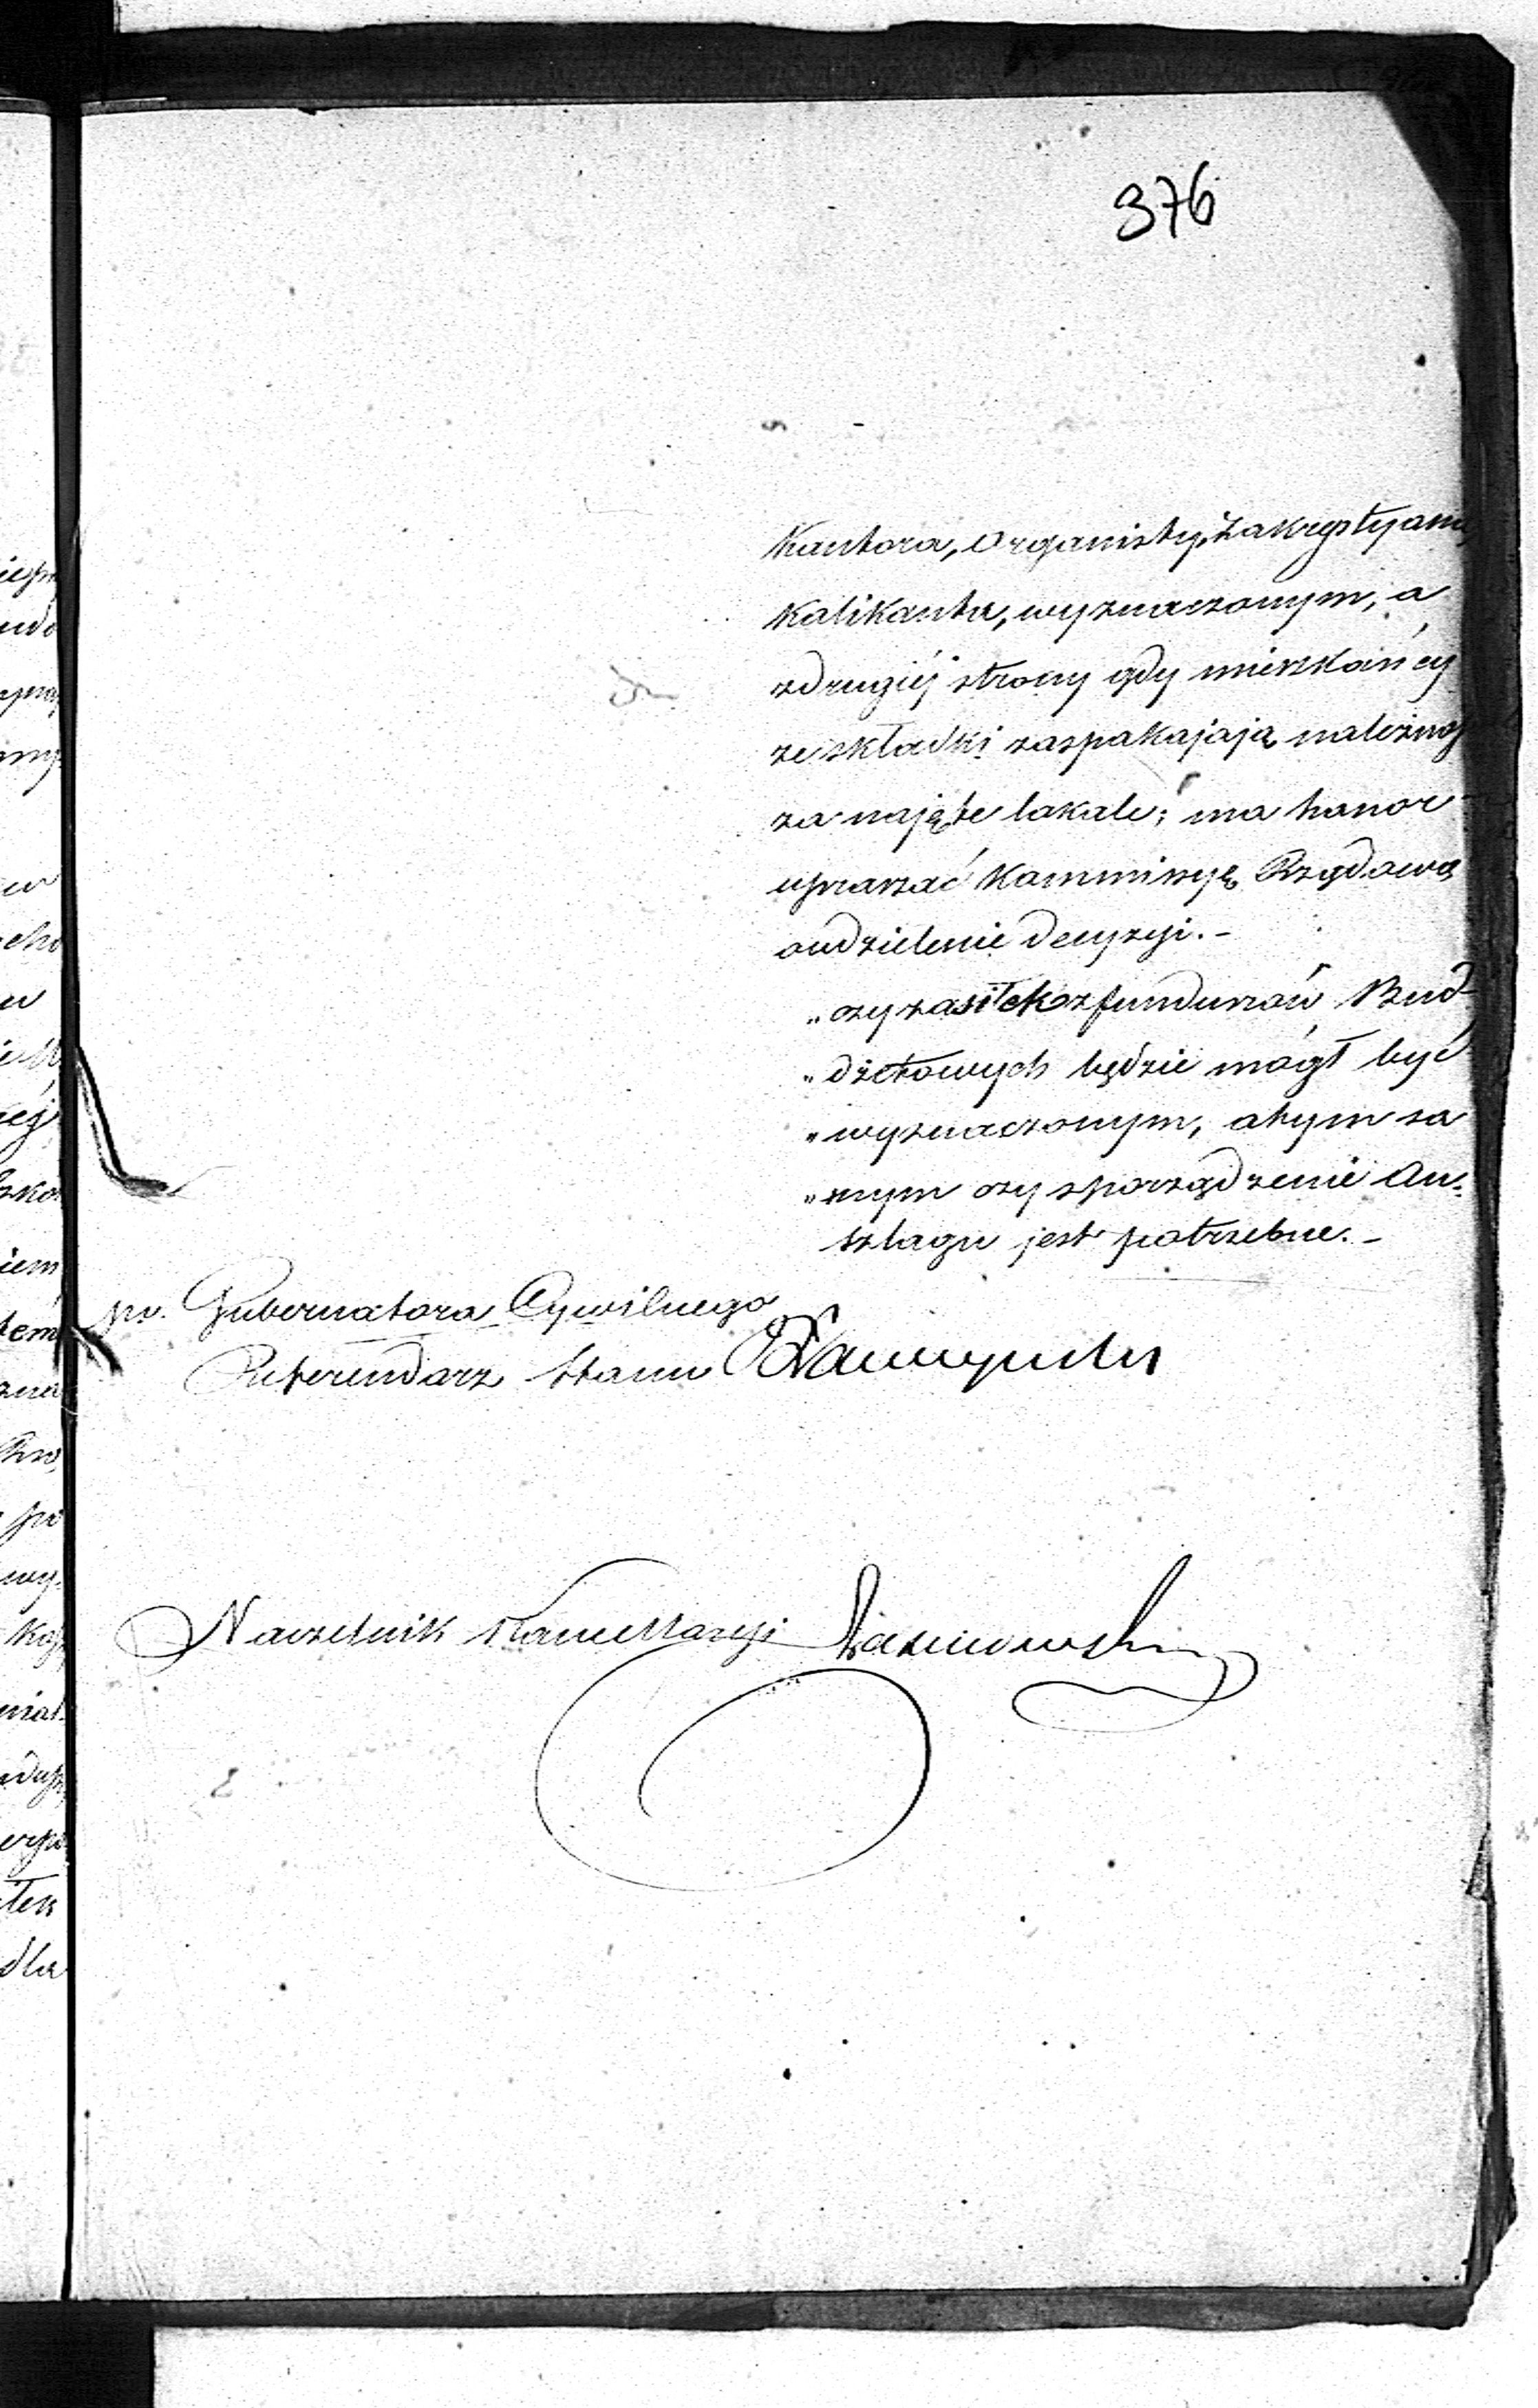 376
Kantora, Organisty, Zakrystyana
Kalikanta, wyznaczonym, a
zdrugiéj strony gdy mieszkańcy
ze składki zaspakajają należność
za najęte lokale; ma honor
upraszać Kommissyę Rządową
oudzielenie decyzyi.-
„czy zasiłek z funduszów Bud-
„dżetowych będzie mógł być
„wyznaczonym, atym sa
„mym czy sporządzenie An-
szlagu jest potrzebne.-
po. Gubernatora Cywilnego
Referendarz Stanu
Naczelnik Kancellaryi